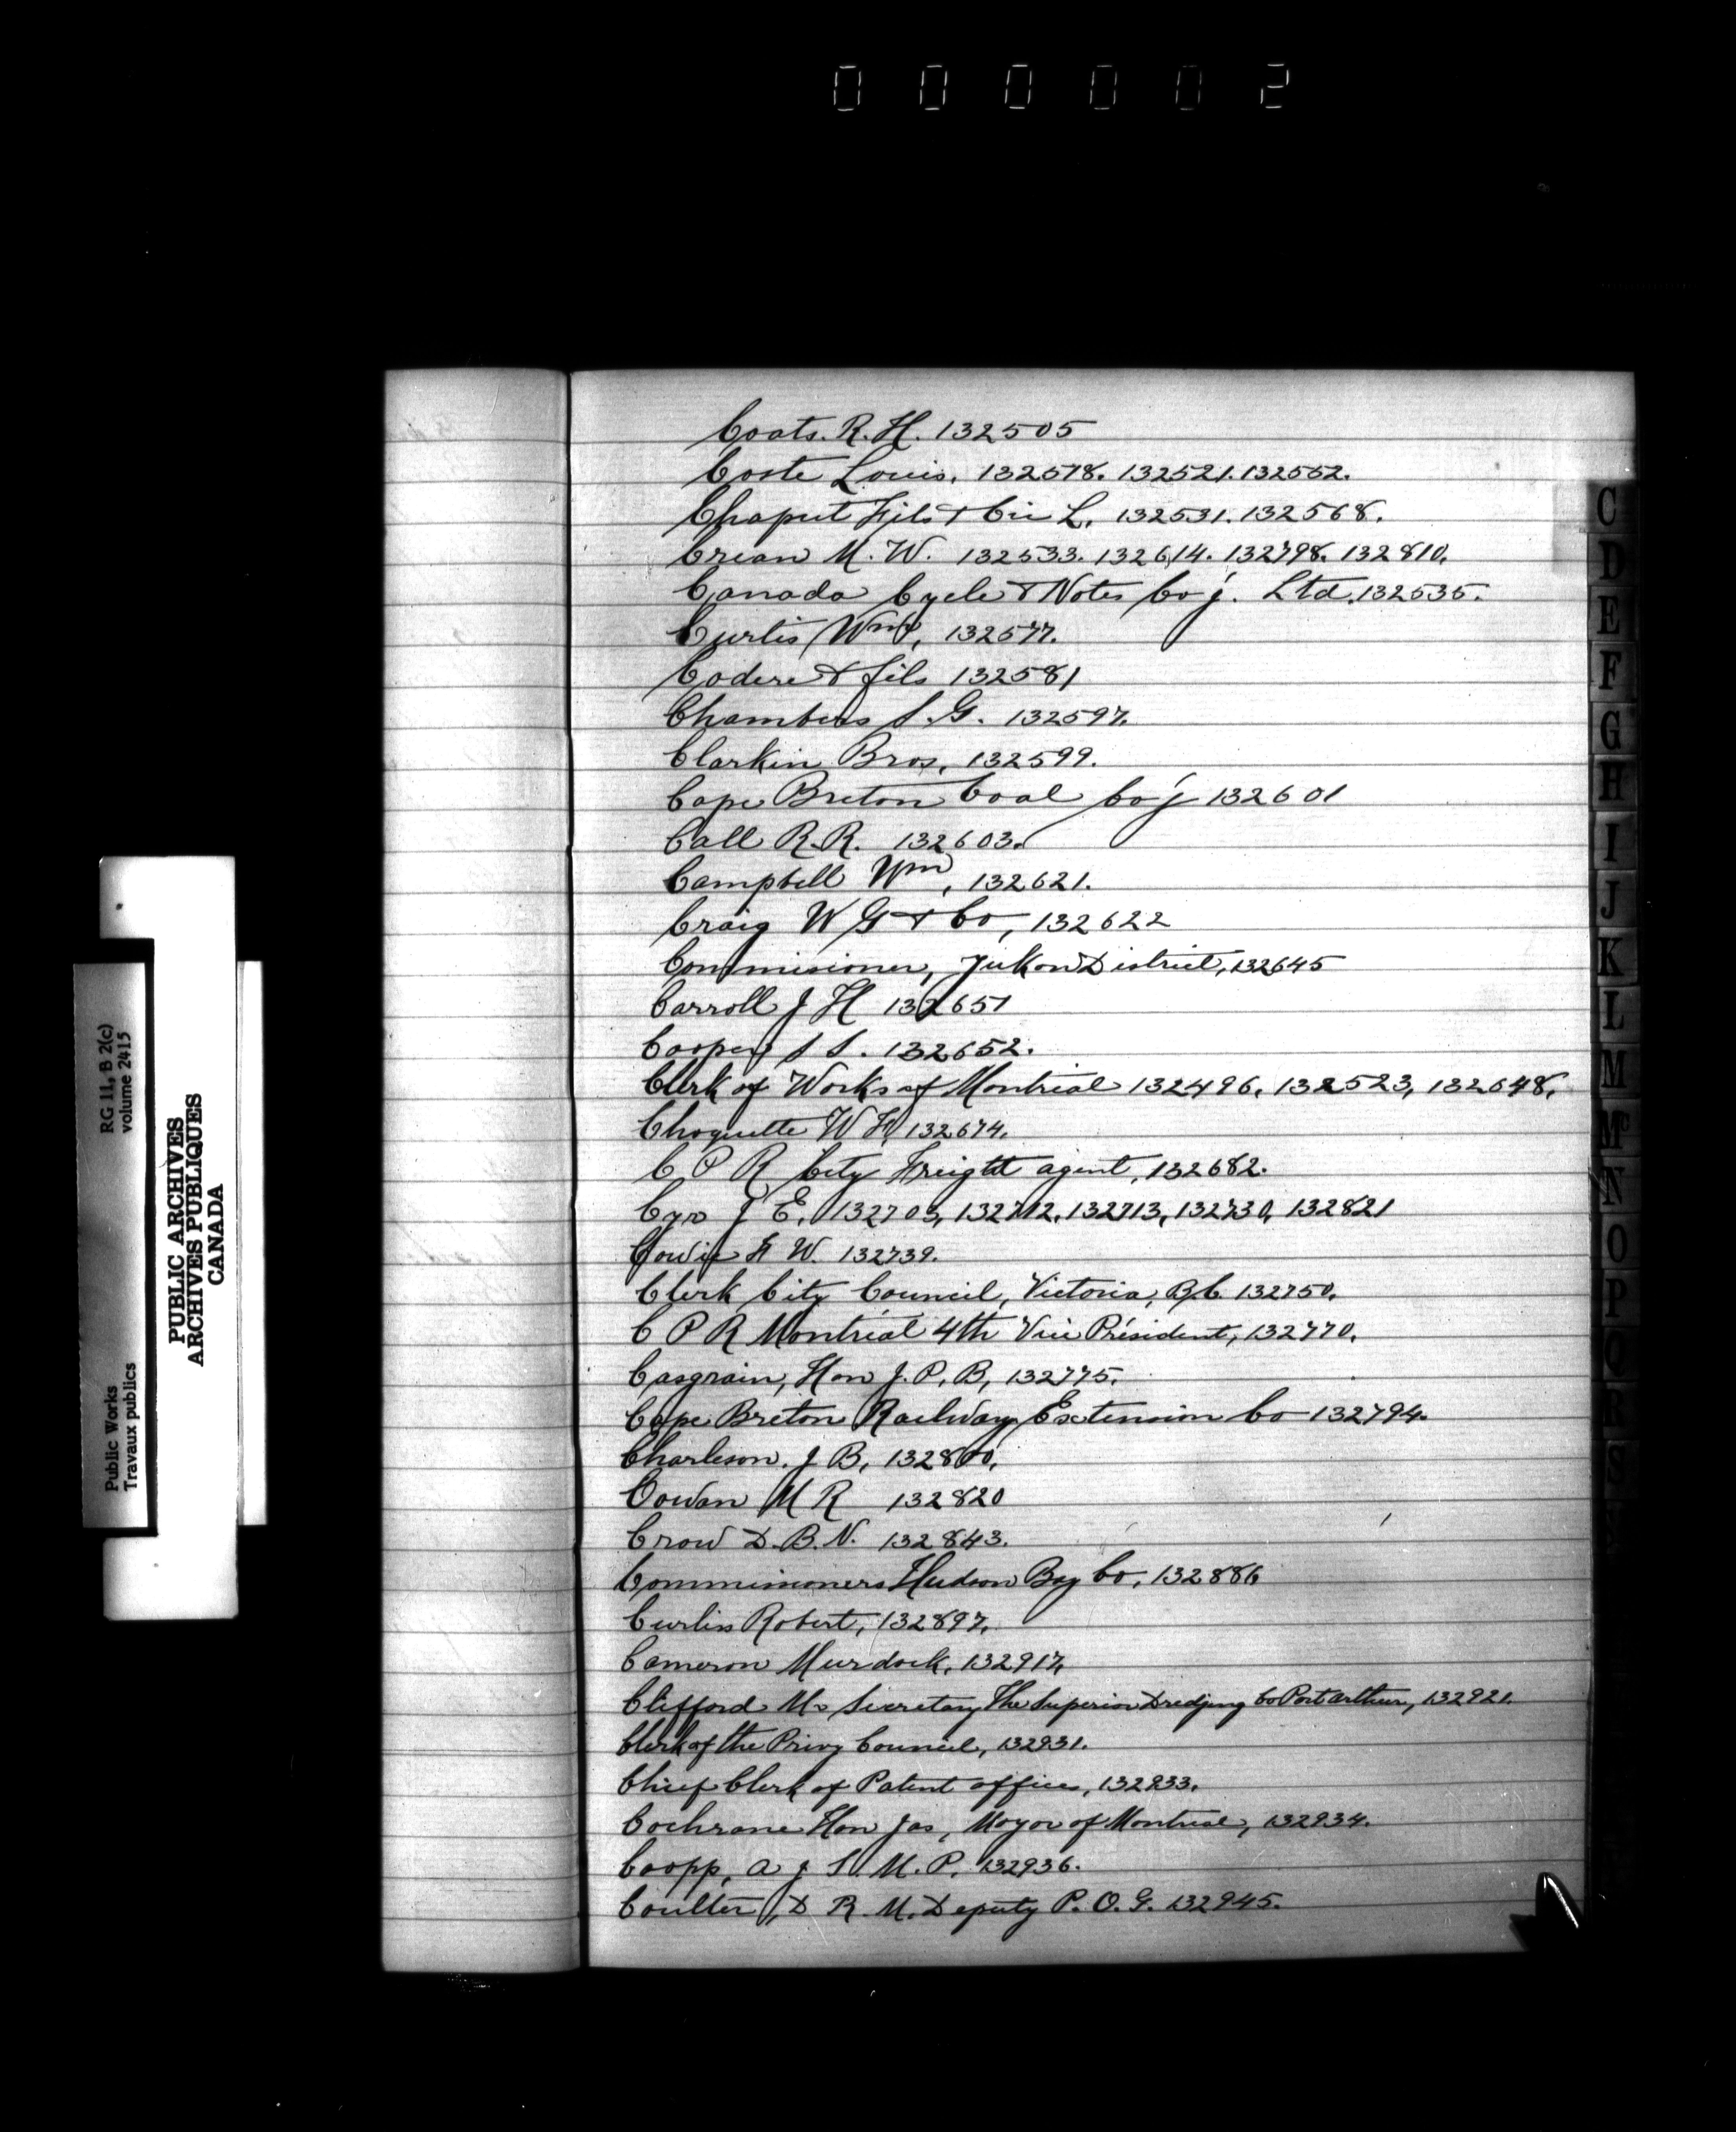 000002
Coats. R. H. 132505
Coste Louis. 132578. 132521. 132552.
Chaput Fils & Cie L. 132531. 132568.
Crean M. W. 132533. 132614. 132798. 132810.
Canada Cycle & Notes Co'y. Ltd. 132535.
Curtis Wm, 132577.
Codere & fils 132581
Chambers S. G. 132597.
Clarkin Bros, 132599.
Cape Breton Coal Co'y 132601
Call R. R. 132603.
Campbell Wm, 132621.
Craig W G & Co, 132622
Commisioner, Yukon District, 132645
Carroll J H 132651
Cooper S S. 132652.
Clerk of Works of Montréal 132496, 132523, 132648,
Choquette W H 132674.
C P R City Freight agent, 132682.
Cyr J E, 132703, 132712, 132713, 132730, 132821
Cowie F W. 132739.
Clerk City Council, Victoria, B.C. 132750,
C P R Montréal 4th Vice Président, 132770,
Casgrain, Hon J. P. B, 132775,
Cape Breton Railway Extension Co 132794.
Charleson. J B, 132800,
Cowan M R 132820
Crow D. B. N. 132843.
Commissioners Hudson Bay Co, 132886
Curliss Robert, 132897,
Cameron Murdock, 132917,
Clifford Mr Secretary The Superior Dredging Co Port Arthur, 132921.
Clerk of the Privy Council, 132931.
Chief Clerk of Patent offices, 132933.
Cochrane Hon Jas, Mayor of Montreal, 132934.
Coopp, A J S. M. P. 132936.
Coulter, D R. M. Deputy P. O. G. 132945.
C
D
E
F
G
H
I
J
K
L
M
Mc
N
O
P
Q
R
S
RG 11, B 2(c)
volume 2415
Public Works
Travaux publics
PUBLIC ARCHIVES
ARCHIVES PUBLIQUES
CANADA